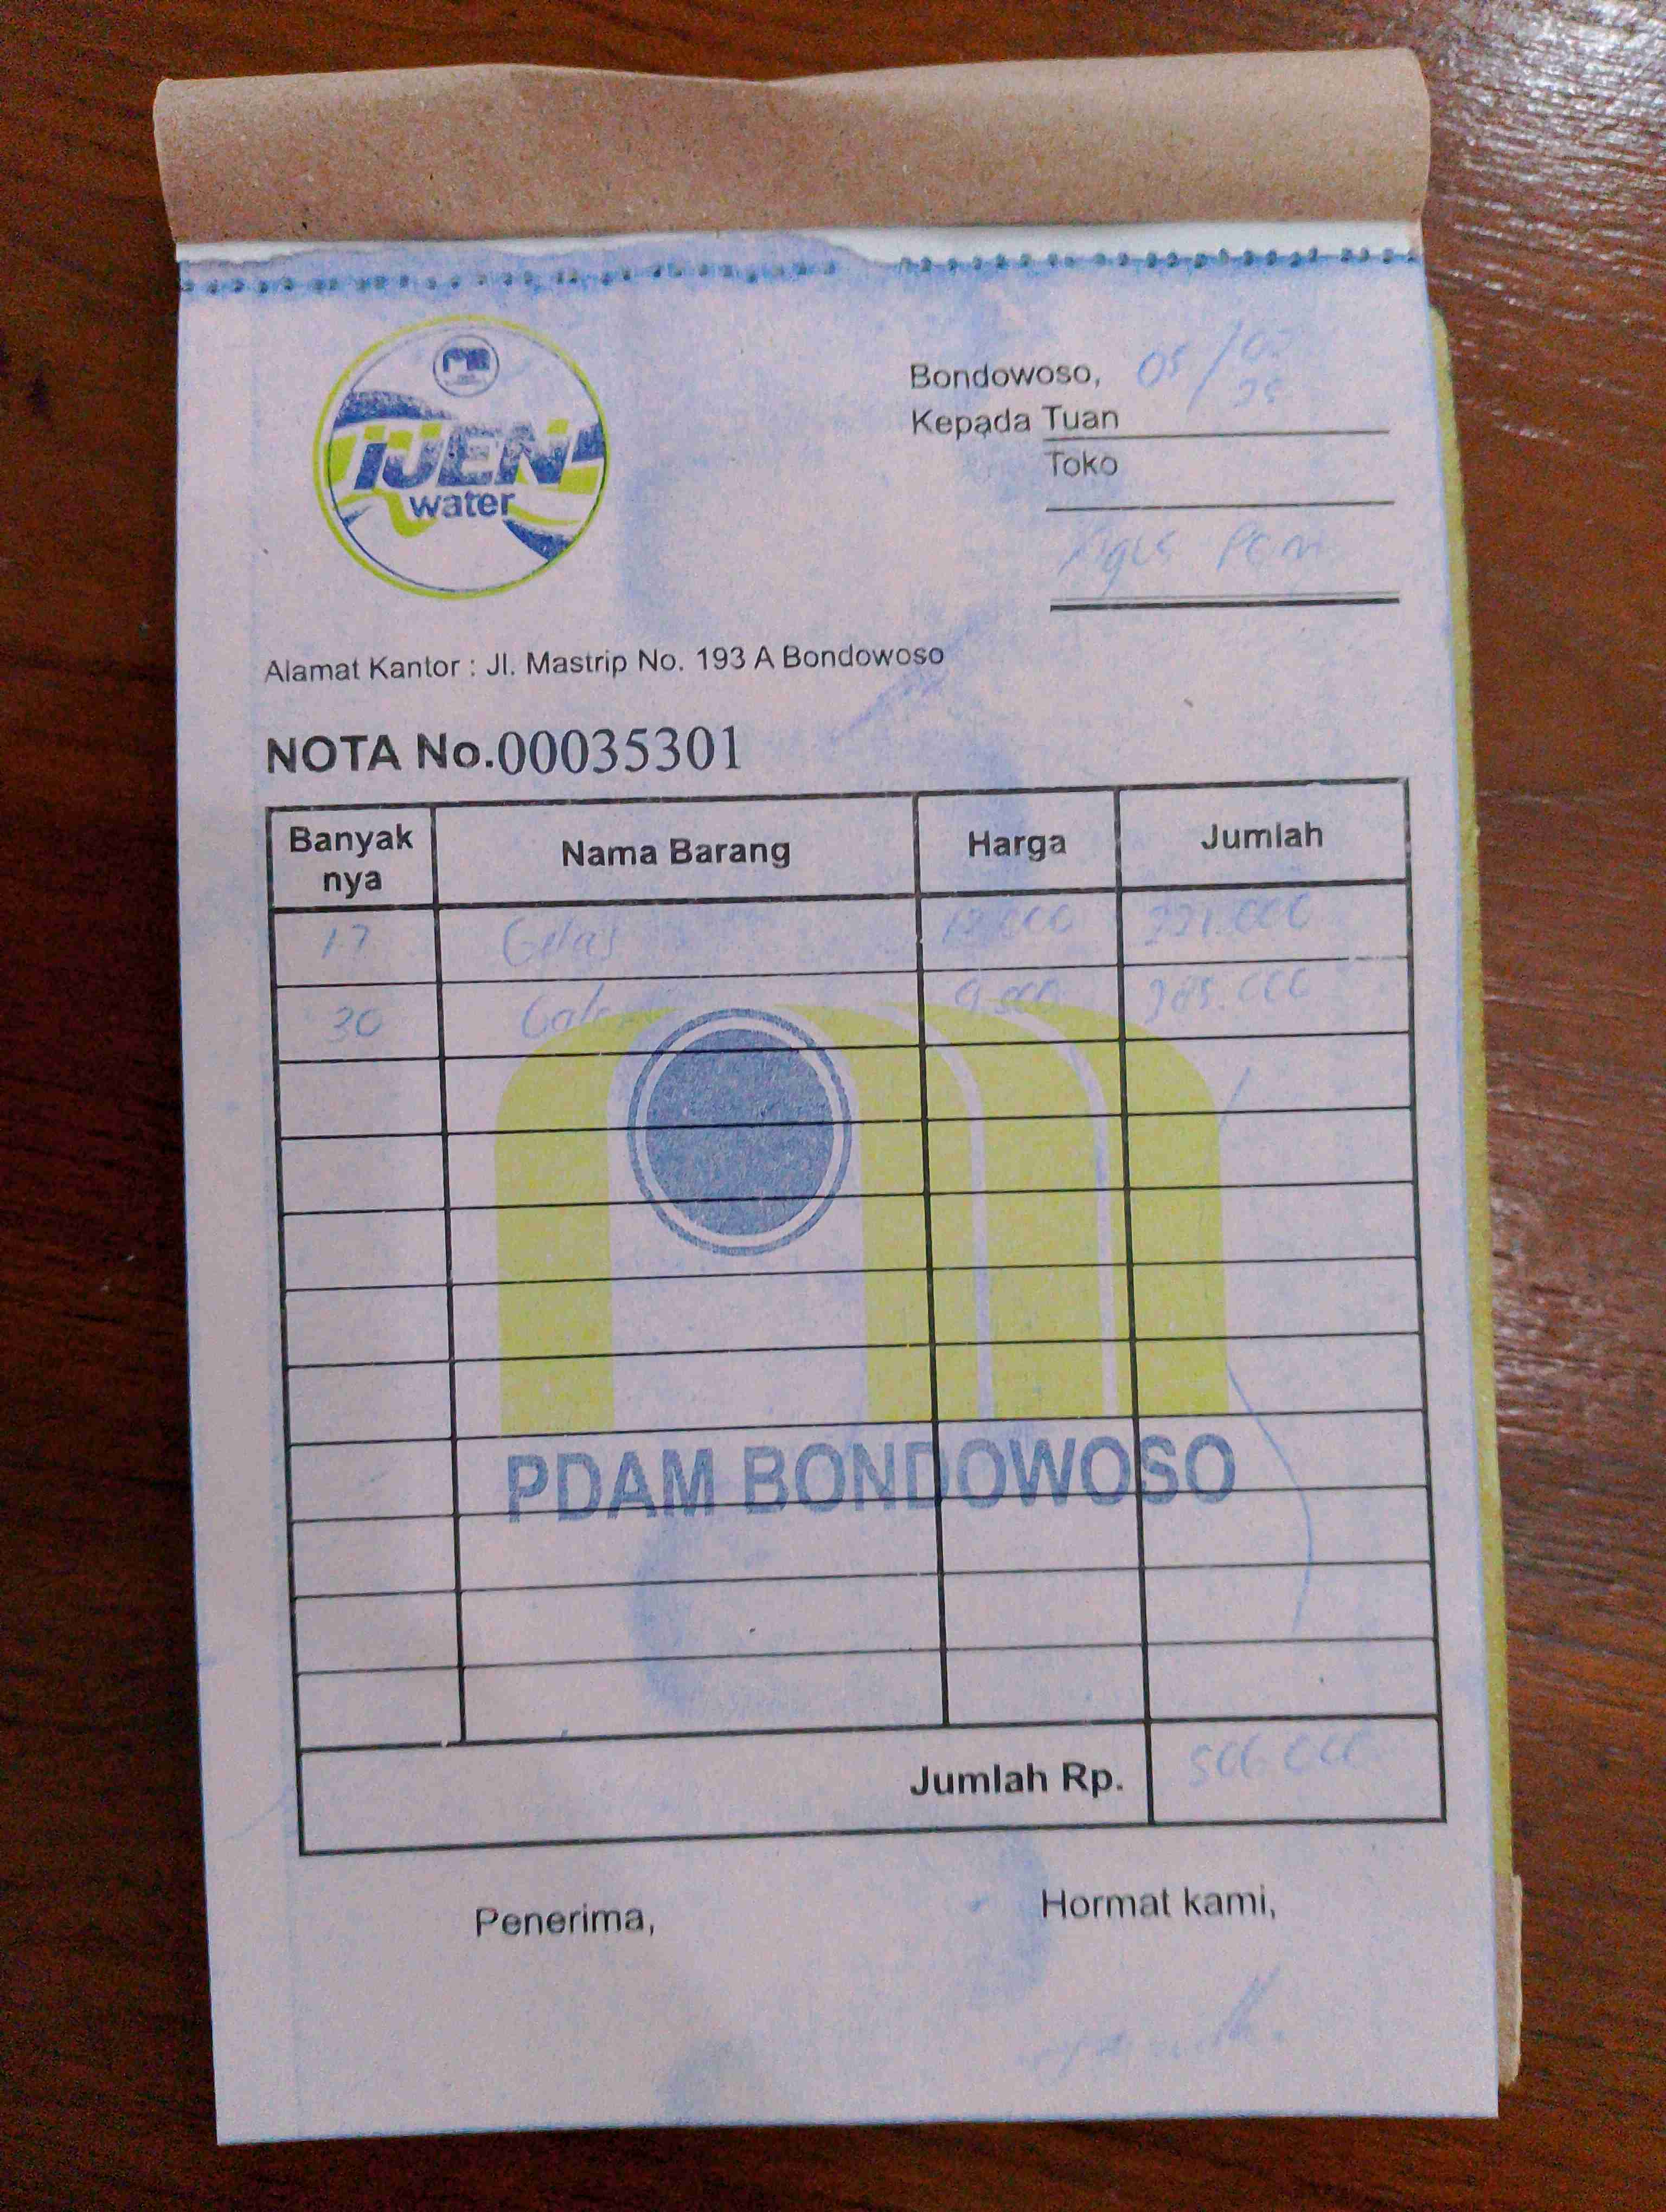 IJEN
water
Bondowoso, 05/03
25
Kepada Tuan
Toko
Agus
Alamat Kantor : Jl. Mastrip No. 193 A Bondowoso
NOTA No.00035301
Banyak nya Nama Barang Harga Jumlah
17 Gelas 13.000 221.000
30 Galon 9.500 285.000
PDAM BONDOWOSO
Jumlah Rp. 506.000
Penerima, Hormat kami,